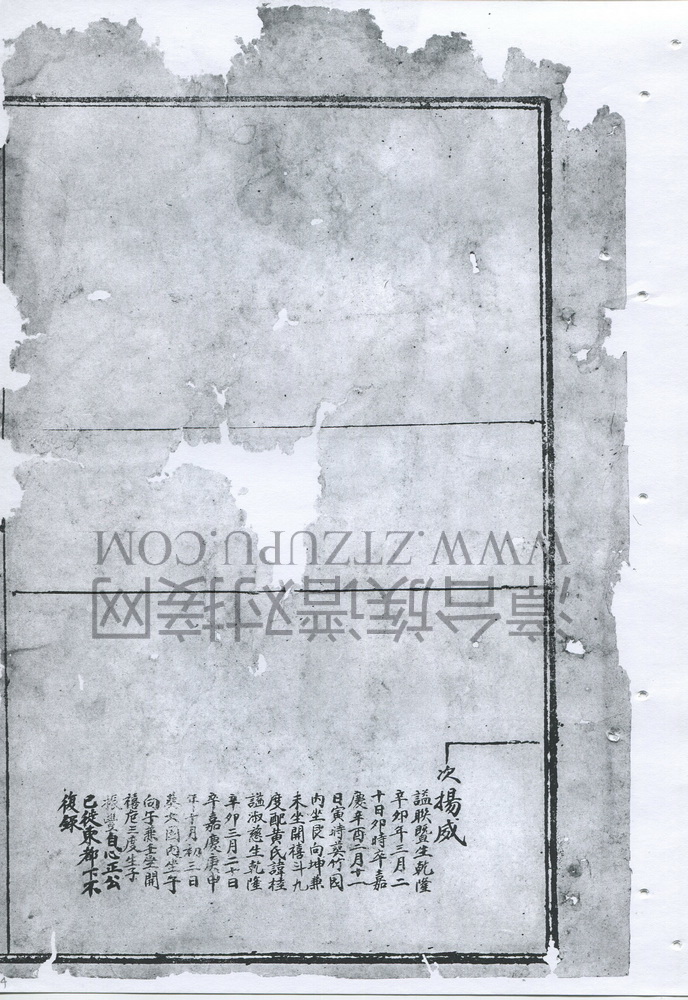 次揚威
諡联暨生乾隆
辛卯年三月二
十日卯時卒嘉
慶辛酉二月十一
日寅時葬竹园
内坐艮向坤兼
未坐開禧斗九
度配黄氏諱桂
諡淑慈生乾隆
辛卯三月二十日
卒嘉慶庚申
年十月初三日
葬大园内坐子
向午兼壬坐開
禧危三度生子
振豐自心正公
已徙東都卞不
復録
WWW.ZTZUPU.COM
漳台族谱对接网
4